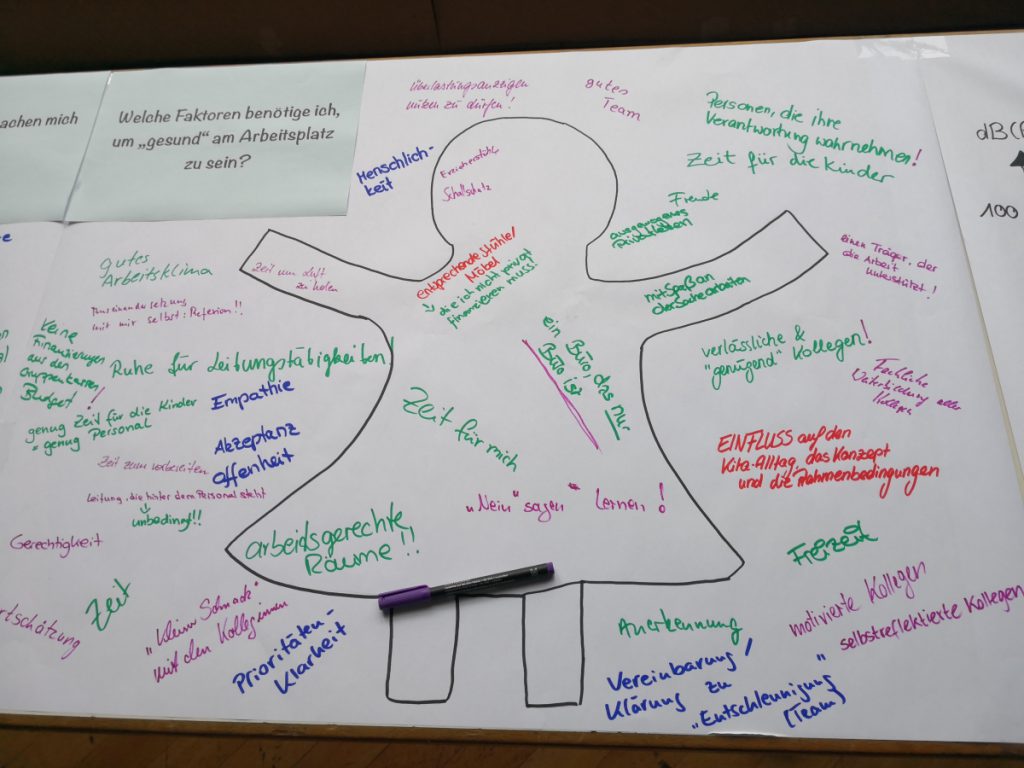 achen mich
Welche Faktoren benötige ich,
um „gesund“ am Arbeitsplatz
zu sein?
dB(
100
Überlastungsanzeigen
zu dürfen!
gutes
Team
Personen, die ihre
Verantwortung wahrnehmen!
Zeit für die Kinder
Menschlich-
keit
Erzieherstühle,
Schallschutz
Freude
ausgewogenes
Privatleben
entsprechende Stühle/
Möbel
↳ die ich nicht privat
finanzieren muss!
mit Spaß an
der Sache arbeiten
einen Träger, der
die Arbeit
unterstützt!
gutes
Arbeitsklima
Zeit um Luft
zu holen
Auseinandersetzung
mit mir selbst:
keine
Finanzierungen
aus den
Gruppenkassen
Budget!
Ruhe für Leitungstätigkeiten!
genug Zeit für die Kinder
genug Personal
Empathie
Akzeptanz
Offenheit
Zeit zum vorbereiten
Leitung, die hinter dem Personal steht
↓
unbedingt!!
Gerechtigkeit
ein Büro, das nur
Büro ist
Zeit für mich
„Nein“ sagen lernen!
arbeitsgerechte
Räume!!
verlässliche &
„genügend“ Kollegen!
Fachliche
Weiterbildung aller
EINFLUSS auf den
Kita-Alltag, das Konzept
und die Rahmenbedingungen
Freizeit
Zeit
rtschätzung
„kleiner Schnack“
mit den Kolleginnen
Prioritäten-
Klarheit
Anerkennung
Vereinbarung/
Klärung zu
„Entschleunigung“
(Team)
motivierte Kollegen
selbstreflektierte Kollegen